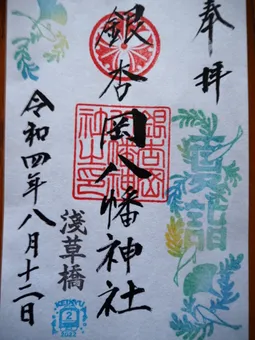 奉拝
夏詣
銀杏岡八幡神社
浅草橋
令和四年八月十二日